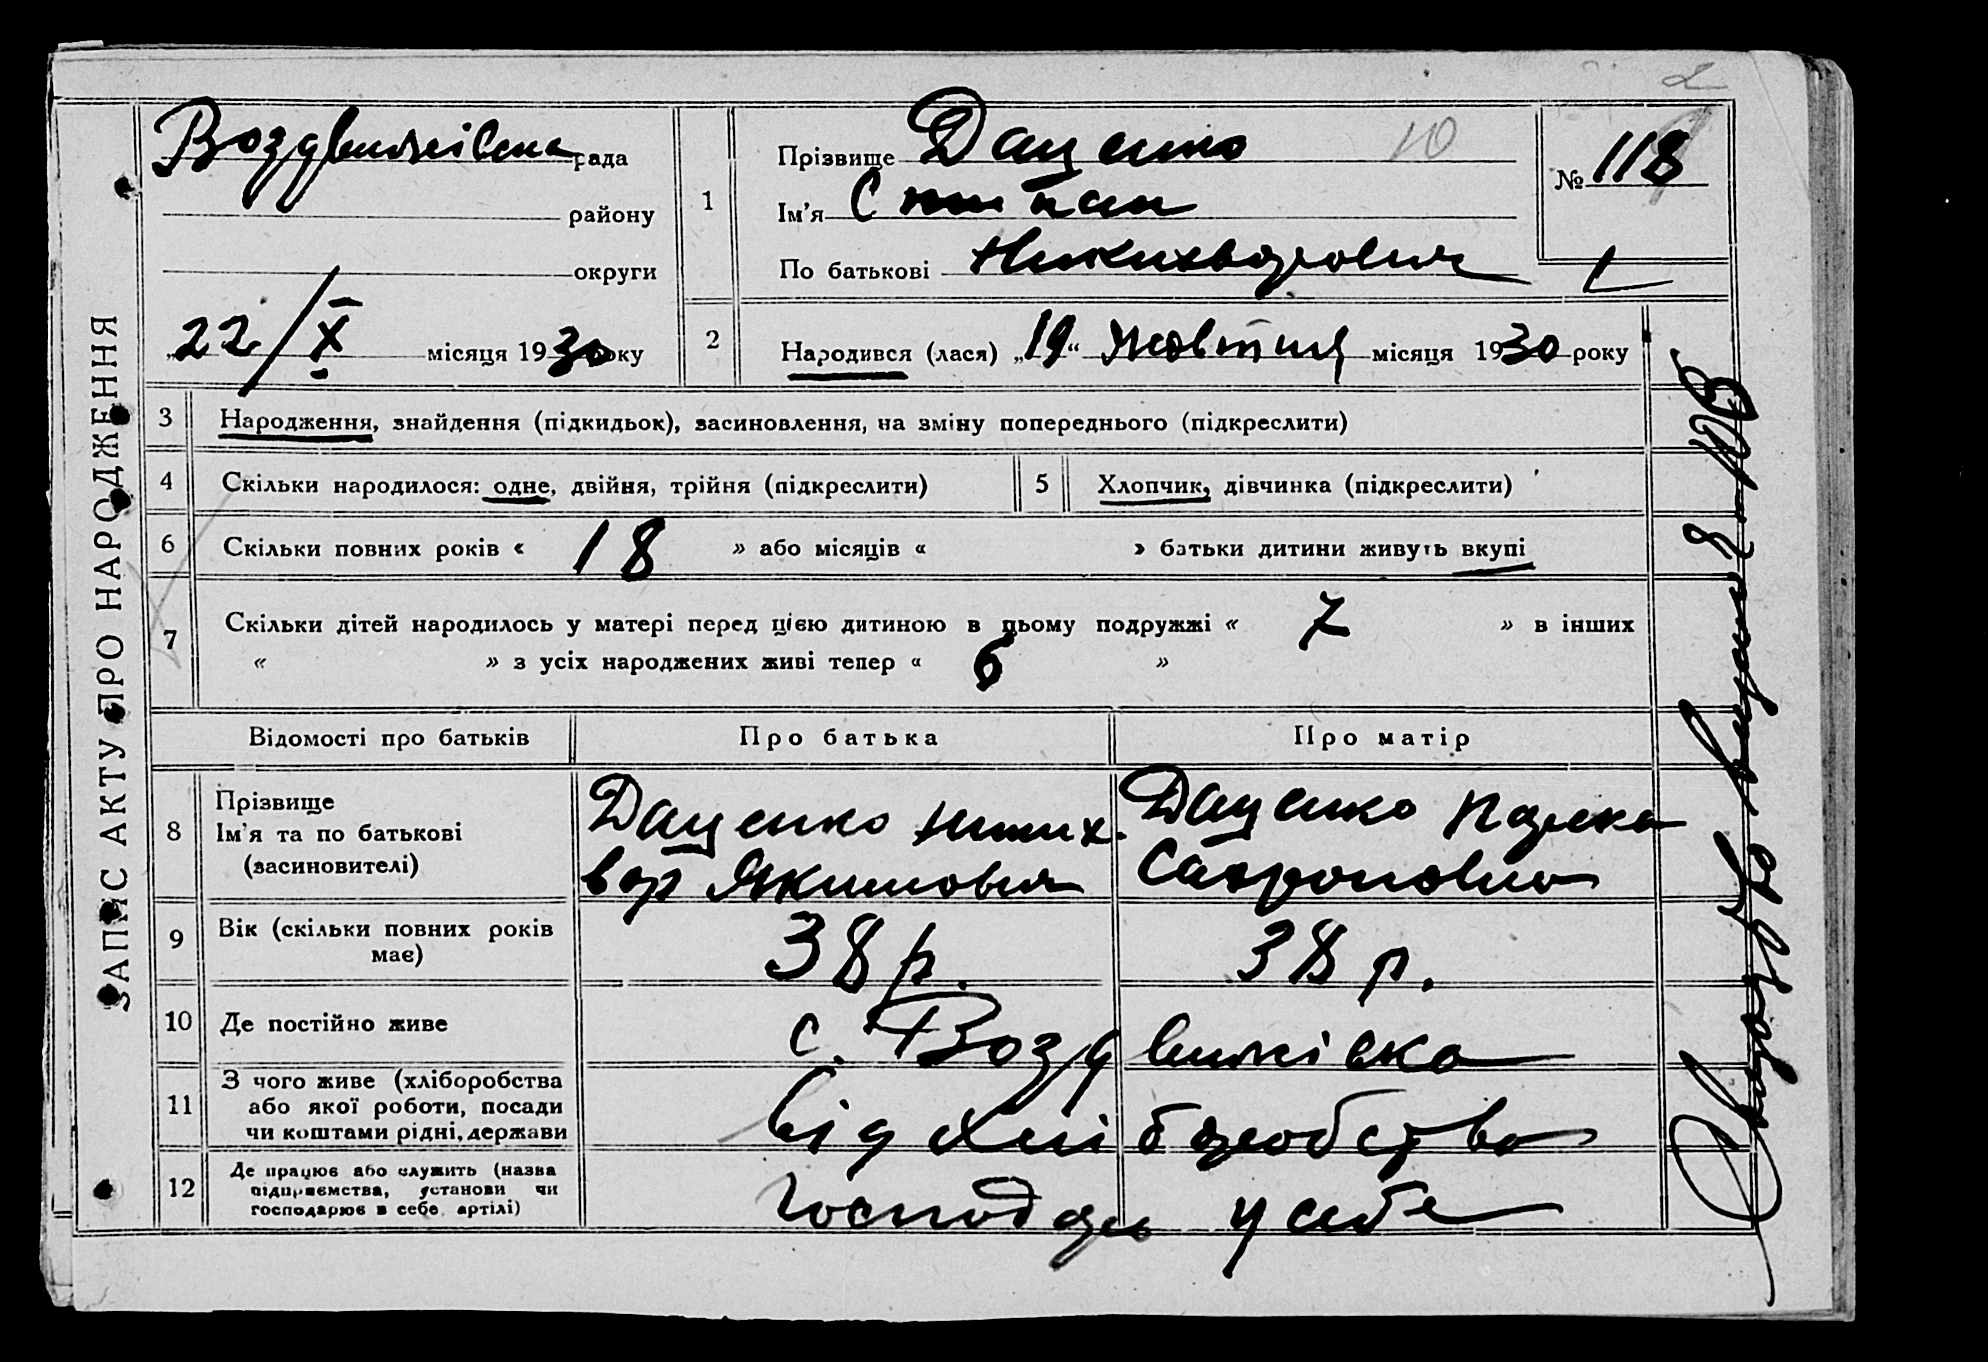 ЗАПИС АКТУ ПРО НАРОДЖЕННЯ
Воздвижівська рада
району
округи
„22/X місяця 1930 року
1
Прізвище Даценко
Ім'я Степан
По батькові Никихворович
10
№ 118
2
2 Народився (лася) „19“ жовтня місяця 1930 року
3 Народження, знайдення (підкидьок), засиновлення, на зміну попереднього (підкреслити)
4 Скільки народилося: одне, двійня, трійня (підкреслити)
5 Хлопчик, дівчинка (підкреслити)
6 Скільки повних років « 18 » або місяців « » батьки дитини живуть вкупі
7 Скільки дітей народилось у матері перед цією дитиною в цьому подружжі « 7 » в інших
« » з усіх народжених живі тепер « 6 »
Відомості про батьків Про батька Про матір
8 Прізвище
Ім'я та по батькові
(засиновителі)
Даценко Никих.
вор Якимович
Даценко
Сафроновна
9 Вік (скільки повних років має)
38 р. 38 р.
10 Де постійно живе
с. Воздвижівка
11 З чого живе (хліборобства
або якої роботи, посади
чи коштами рідні, держави
від хліборобства
12 Де працює або служить (назва
підприємства, установи чи
господарює в себе, артілі)
господар у себе